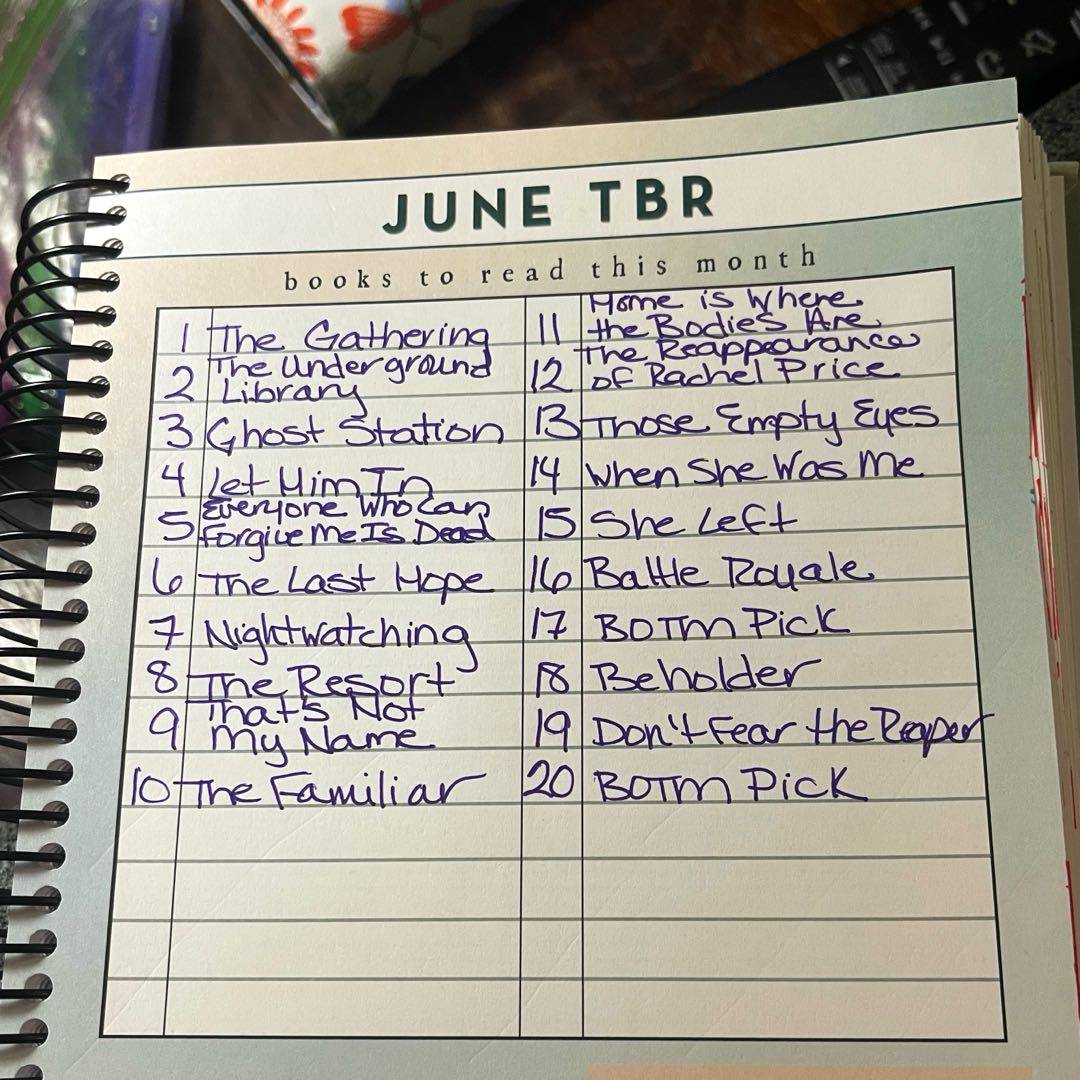 JUNE TBR
books to read this month
1 The Gathering
2 The Underground
Library
3 Ghost Station
4 Let Him In
5 Everyone Who Can
Forgive Me Is Dead
6 The Last Hope
7 Nightwatching
8 The Resort
9 That's Not
My Name
10 The Familiar
11 Home is Where
the Bodies Are
12 The Reappearance
of Rachel Price
13 Those Empty Eyes
14 When She Was Me
15 She Left
16 Battle Royale
17 BOTM Pick
18 Beholder
19 Don't Fear the Reaper
20 BOTM Pick